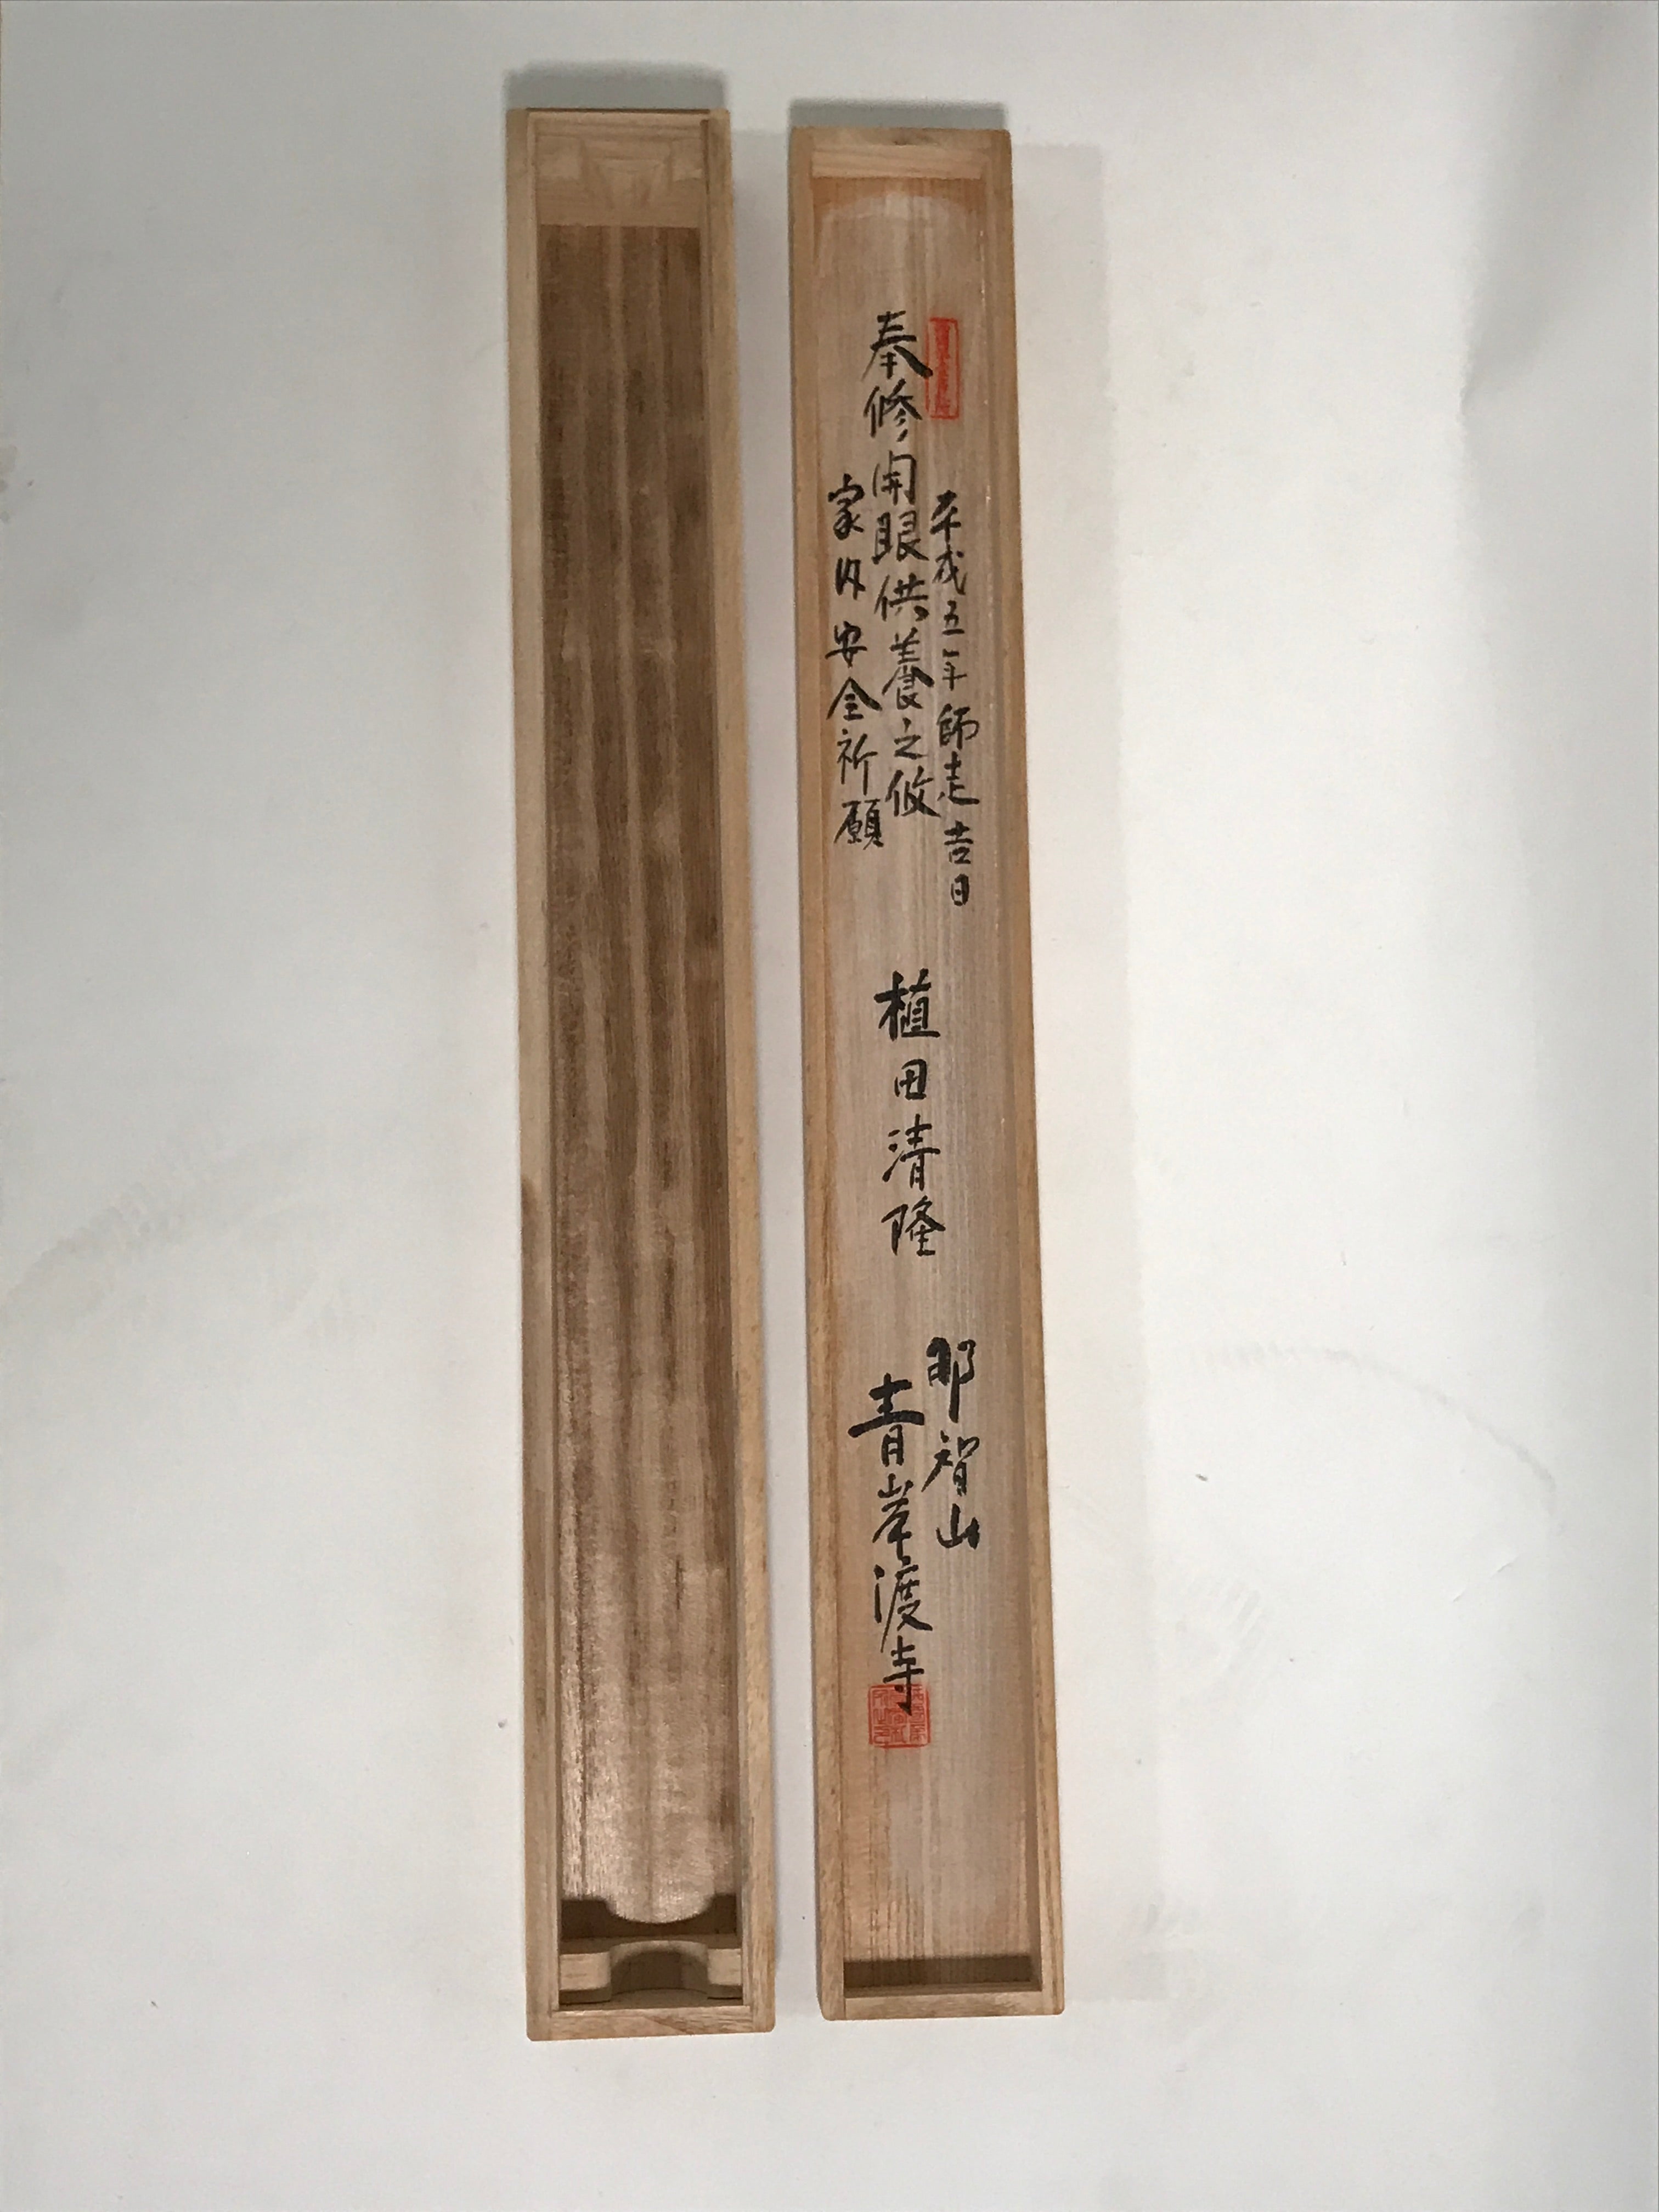 平成五年師走吉日
奉修開眼供養之攸
家内安全祈願
植田清隆
那智山
青岸渡寺